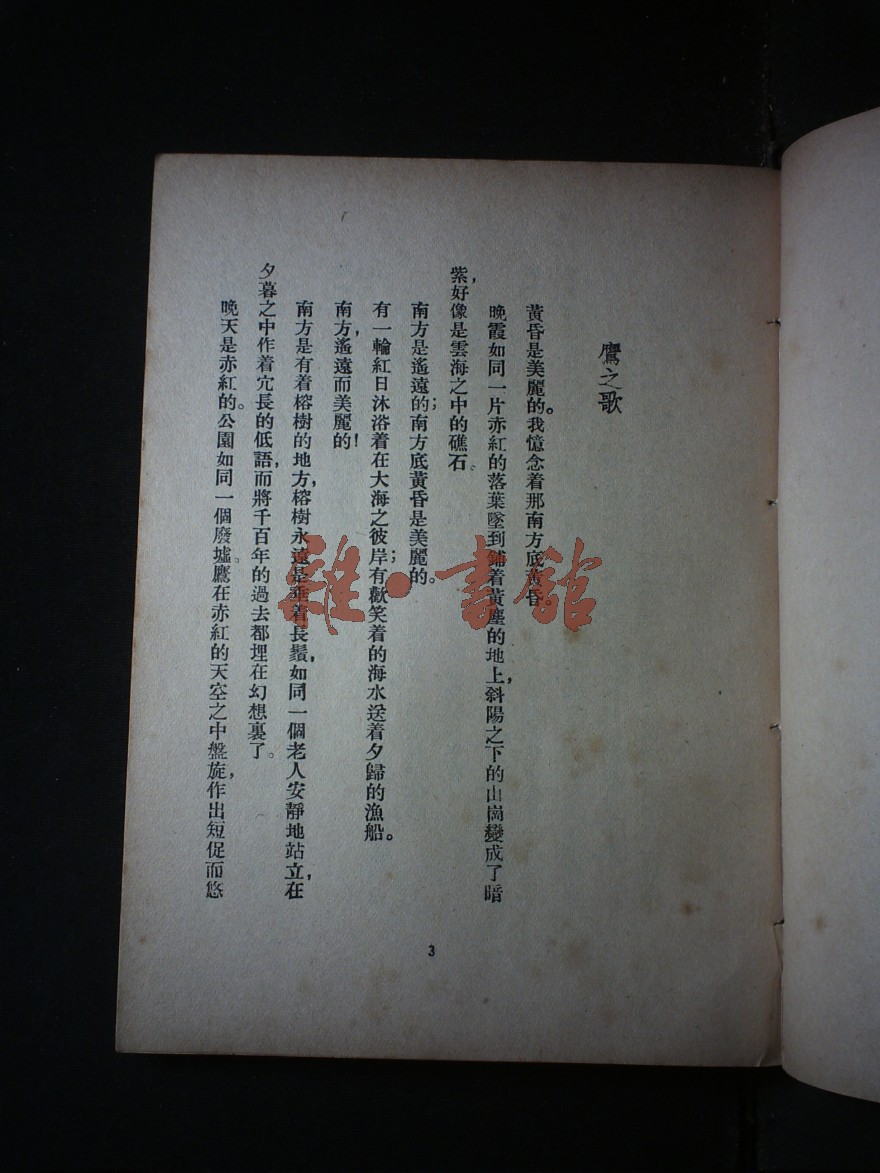 鷹之歌
黃昏是美麗的。我憶念着那南方底黃昏
晚霞如同一片赤紅的落葉墜到鋪着黃塵的地上，斜陽之下的山崗變成了暗
紫，好像是雲海之中的礁石。
南方是遙遠的；南方底黃昏是美麗的。
有一輪紅日沐浴着在大海之彼岸；有歡笑着的海水送着夕歸的漁船。
南方，遙遠而美麗的！
南方是有着榕樹的地方，榕樹永遠是垂着長鬚，如同一個老人安靜地站立，在
夕暮之中作着冗長的低語，而將千百年的過去都埋在幻想裏了。
晚天是赤紅的。公園如同一個廢墟。鷹在赤紅的天空之中盤旋，作出短促而悠
3
雜·書館